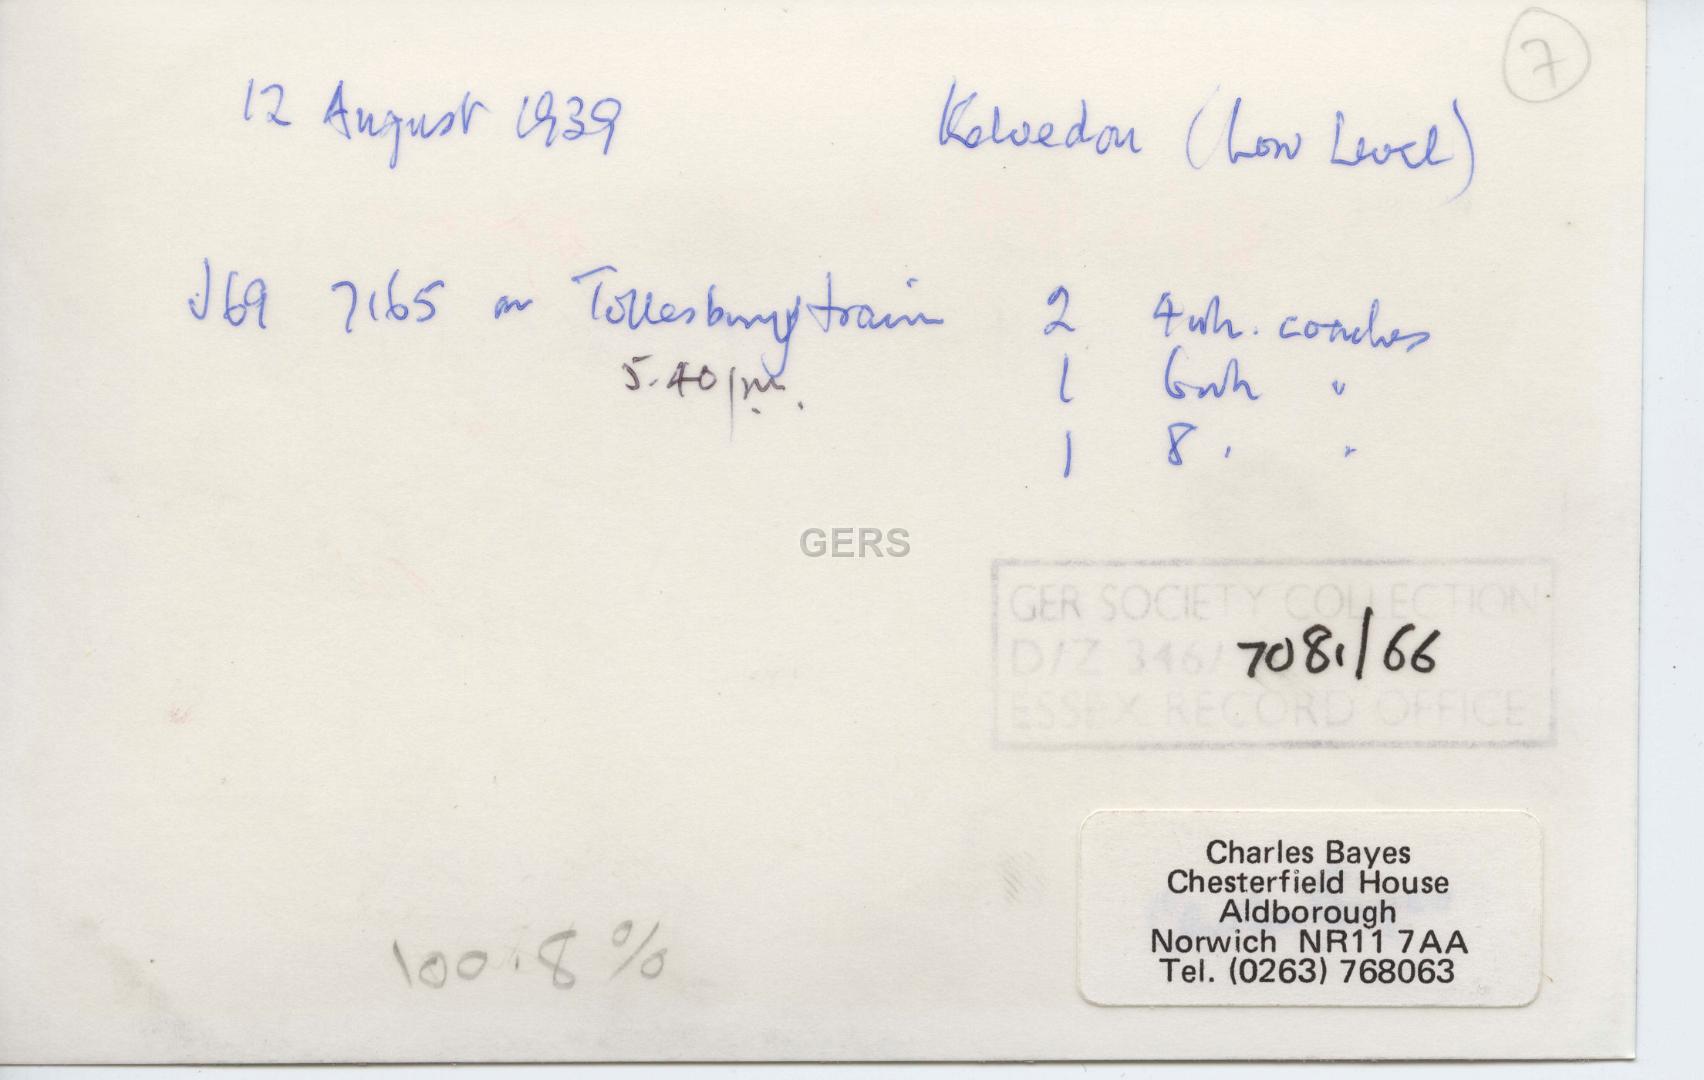 7
12 August 1939 Kelvedon (Low Level)
J69 7165 on Tollesbury train 2 4wh. coaches
5.40pm. 1 6wh "
1 8 " "
GERS
GER SOCIETY COLLECTION
D/Z 346/ 7081/66
ESSEX RECORD OFFICE
Charles Bayes
Chesterfield House
Aldborough
Norwich NR11 7AA
Tel. (0263) 768063
100.8 %